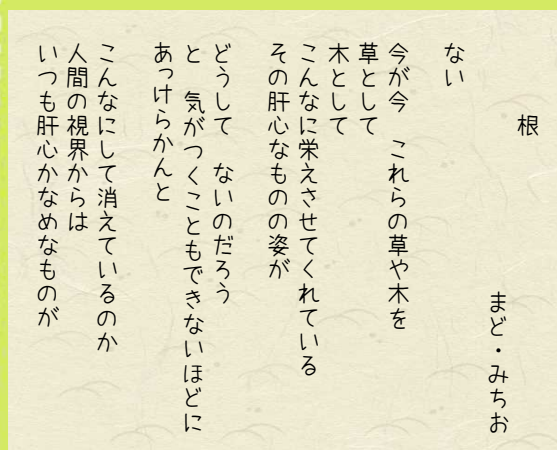 根
まど・みちお
ない
今が今　これらの草や木を
草として
木として
こんなに栄えさせてくれている
その肝心なものの姿が
どうして　ないのだろう
と　気がつくこともできないほどに
あっけらかんと
こんなにして消えているのか
人間の視界からは
いつも肝心かなめなものが